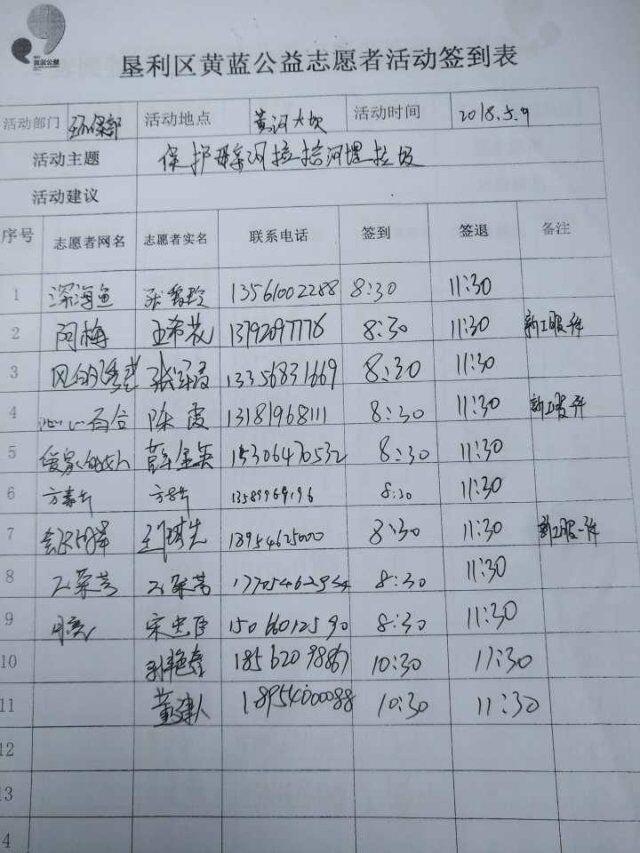 黄蓝公益
垦利区黄蓝公益志愿者活动签到表
活动部门 环保部 活动地点 黄河大坝 活动时间 2018.5.9
活动主题 保护母亲河捡拾河堤垃圾
活动建议
序号 志愿者网名 志愿者实名 联系电话 签到 签退 备注
1 深海鱼 13561002288 8:30 11:30
2 闵梅 13792097776 8:30 11:30 新工服一件
3 13356831669 8:30 11:30
4 沁心百合 陈霞 13181968111 8:30 11:30 新工服一件
5 爱家的女人 15306470532 8:30 11:30
6 13589969196 8:30 11:30
7 18954625000 8:30 11:30 新工服一件
8 8:30 11:30
9 宋忠臣 15066012590 8:30 11:30
10 18562098867 10:30 11:30
11 董建人 18954000088 10:30 11:30
12
13
4